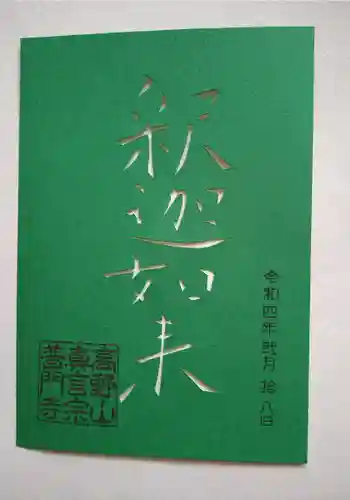 釈迦如来
令和四年弐月拾八日
高野山
真言宗
普門寺